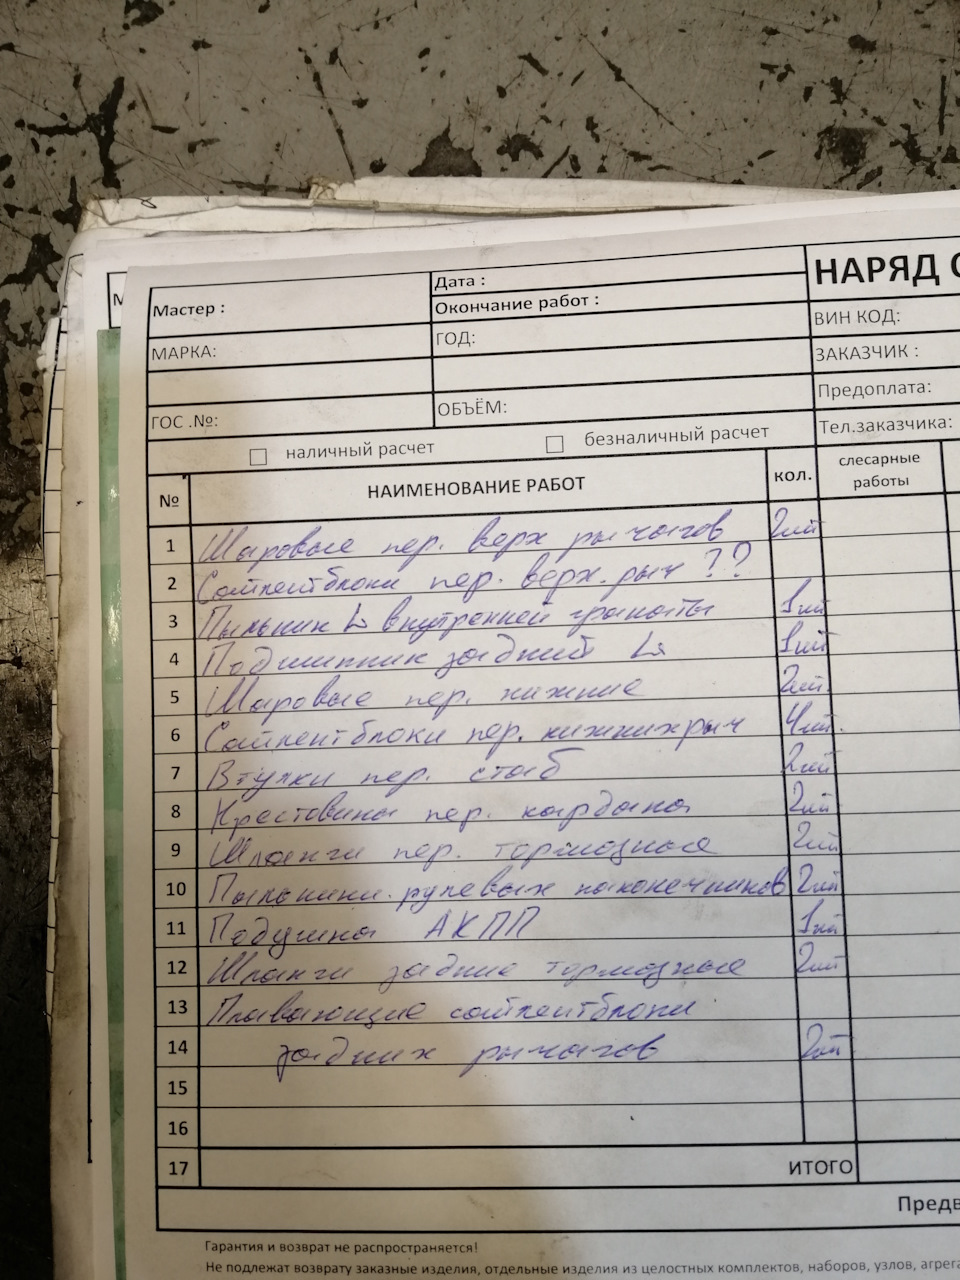 М
Дата :
НАРЯД
Мастер :
Окончание работ :
ВИН КОД:
МАРКА:
ГОД:
ЗАКАЗЧИК :
Предоплата:
ГОС .№:
ОБЪЁМ:
Тел.заказчика:
наличный расчет
безналичный расчет
№
НАИМЕНОВАНИЕ РАБОТ
кол.
слесарные
работы
1 Шаровые пер. верх рычагов 2шт
2 Сайлентблоки пер. верх. рыч ??
3 Пыльник L внутренней гранаты 1шт
4 Подшипник задний L 1шт
5 Шаровые пер. нижние 2шт.
6 Сайлентблоки пер. нижних рыч 4шт.
7 Втулки пер. стаб 2шт
8 Крестовина пер. кардана 2шт
9 Шланги пер. тормозные 2шт
10 Пыльники рулевых наконечников 2шт
11 Подушка АКПП 1шт
12 Шланги задние тормозные 2шт
13 Плавающие сайлентблоки
14 задних рычагов 2шт
15
16
17 ИТОГО
Предв
Гарантия и возврат не распространяется!
Не подлежат возврату заказные изделия, отдельные изделия из целостных комплектов, наборов, узлов, агрега